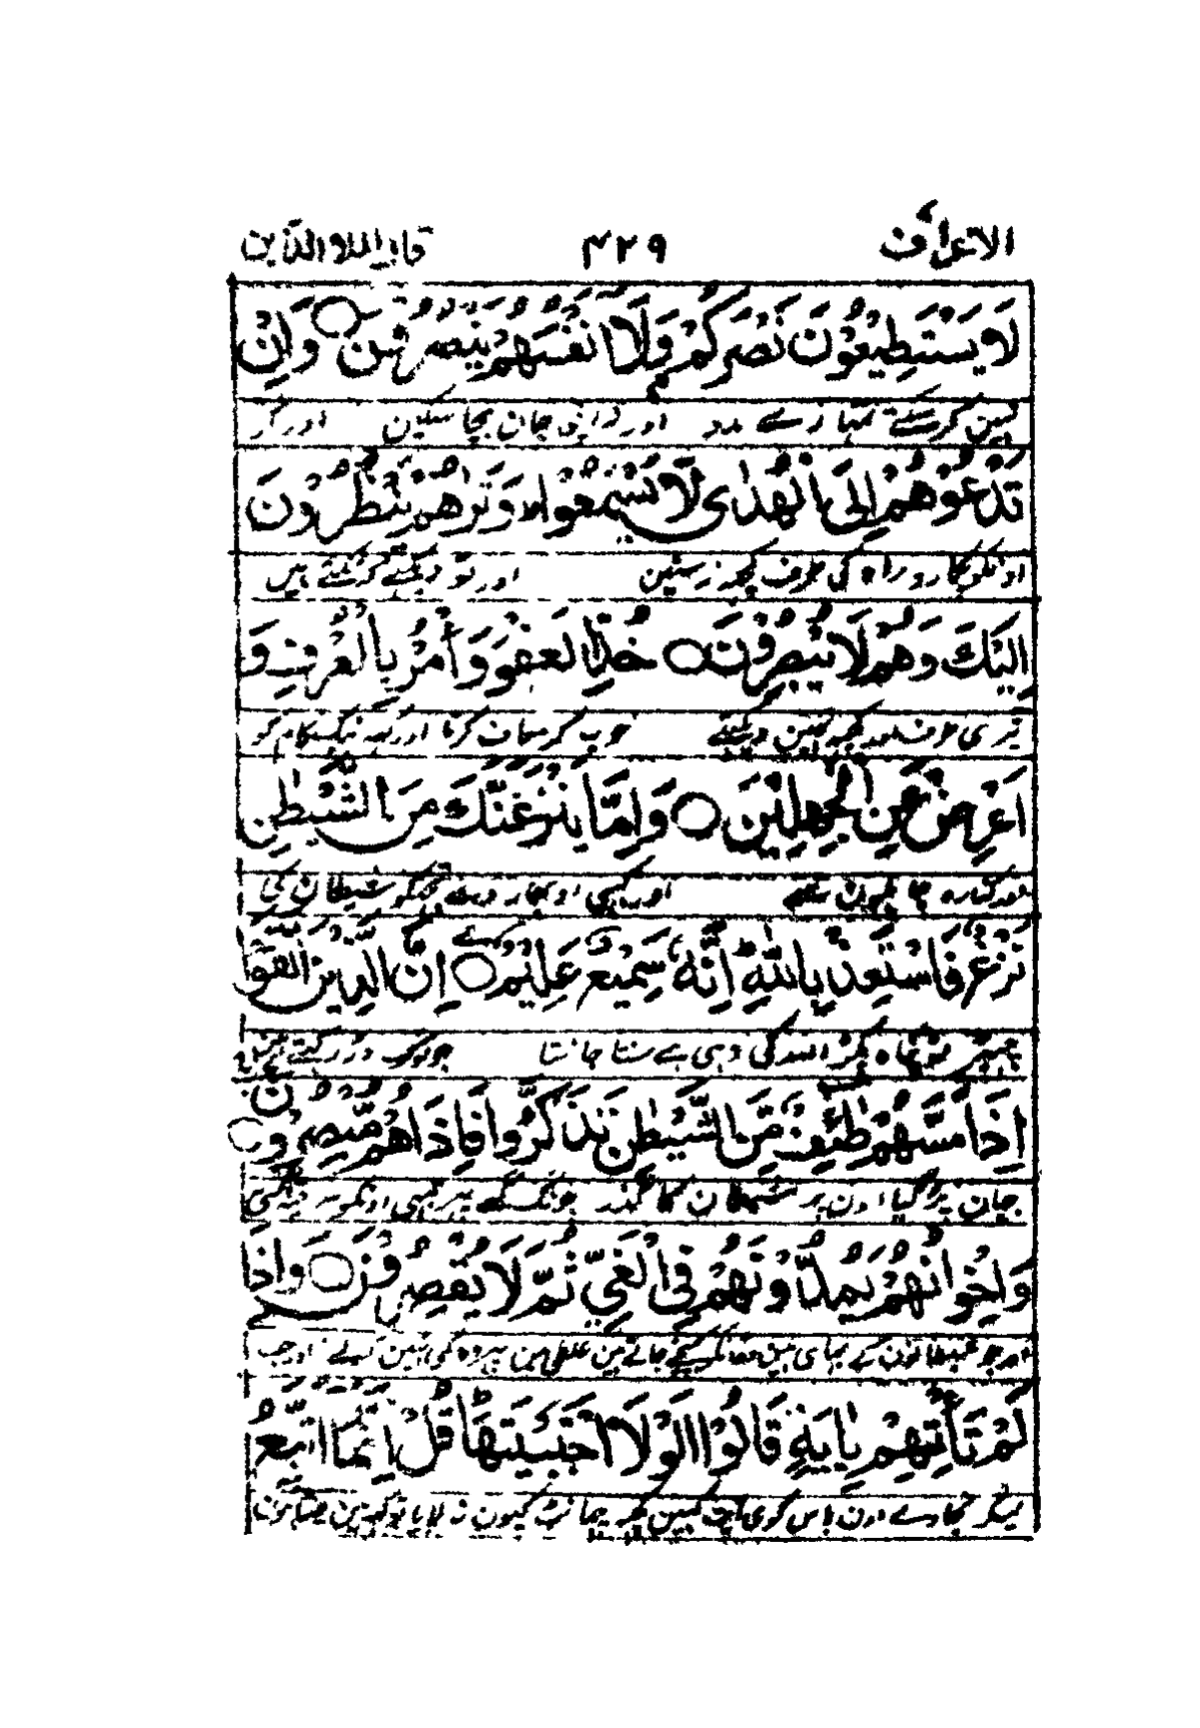 الاعراف ۴۲۹ قال الملا الذين
لَا يَسْتَطِيْعُوْنَ نَصْرَكُمْ وَلَا اَنْفُسَهُمْ يَنْصُرُوْنَ ○ وَاِنْ
نہین کر سکتے تمہارے مدد اور نہ اپنی جان بچا سکین اور گر
تَدْعُوْهُمْ اِلَى الْهُدٰى لَا يَسْمَعُوْا وَتَرٰهُمْ يَنْظُرُوْنَ
اونکو پکارو راہ کی طرف کچھ نہ سنین اور تو دیکھے کہ تکتے ہین
اِلَيْكَ وَهُمْ لَا يُبْصِرُوْنَ ○ خُذِ الْعَفْوَ وَأْمُرْ بِالْعُرْفِ وَ
تیری طرف اور کچھ نہین دیکھتے خوب کر معاف کرنا اور کہہ نیک کام کو
اَعْرِضْ عَنِ الْجٰهِلِيْنَ ○ وَاِمَّا يَنْزَغَنَّكَ مِنَ الشَّيْطٰنِ
اور کنارہ جاہلون سے اور کبھی اوبھار دے تجکو شیطان کی
نَزْغٌ فَاسْتَعِذْ بِاللّٰهِ اِنَّهٗ سَمِيْعٌ عَلِيْمٌ ○ اِنَّ الَّذِيْنَ اتَّقَوْا
چھیڑ تو پناہ پکڑ اللہ کی وہی ہے سنتا جانتا جو لوگ ڈر رکھتے ہین
اِذَا مَسَّهُمْ طٰٓئِفٌ مِّنَ الشَّيْطٰنِ تَذَكَّرُوْا فَاِذَا هُمْ مُّبْصِرُوْنَ ○
جہان پڑ گیا اون پر شیطان کا گذر چونک گئے پھر تبہی اونکو سوجھ آگئی
وَاِخْوَانُهُمْ يَمُدُّوْنَهُمْ فِى الْغَيِّ ثُمَّ لَا يُقْصِرُوْنَ ○ وَاِذَا
اور جو شیطانون کے بھائی ہین کھینچے جاتے ہین غلطی مین پھر وہ کمی نہین کرتے اور جب
لَمْ تَأْتِهِمْ بِاٰيَةٍ قَالُوْا لَوْلَا اجْتَبَيْتَهَا قُلْ اِنَّمَا اَتَّبِعُ
لیکر نجاوے اون پاس کوئی آیت کہین کچھ چھانٹ کیون نہ لایا تو کہہ مین چلتا ہون